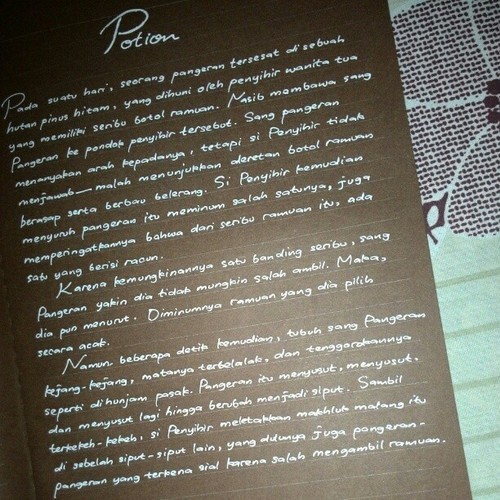 Potion
Pada suatu hari, seorang pangeran tersesat di sebuah
hutan pinus hitam, yang dihuni oleh penyihir wanita tua
yang memiliki seribu botol ramuan. Nasib membawa sang
Pangeran ke pondok penyihir tersebut. Sang pangeran
menanyakan arah kepadanya, tetapi si Penyihir tidak
menjawab— malah menunjukkan deretan botol ramuan
berasap serta berbau belerang. Si Penyihir kemudian
menyuruh pangeran itu meminum salah satunya, juga
memperingatkannya bahwa dari seribu ramuan itu, ada
satu yang berisi racun.
Karena kemungkinannya satu banding seribu, sang
Pangeran yakin dia tidak mungkin salah ambil. Maka,
dia pun menurut. Diminumnya ramuan yang dia pilih
secara acak.
Namun beberapa detik kemudian, tubuh sang Pangeran
kejang-kejang, matanya terbelalak, dan tenggorokannya
seperti dihunjam pasak. Pangeran itu menyusut, menyusut,
dan menyusut lagi hingga berubah menjadi siput. Sambil
terkekeh-kekeh, si Penyihir meletakkan makhluk malang itu
di sebelah siput-siput lain, yang dulunya juga pangeran-
pangeran yang terkena sial karena salah mengambil ramuan.